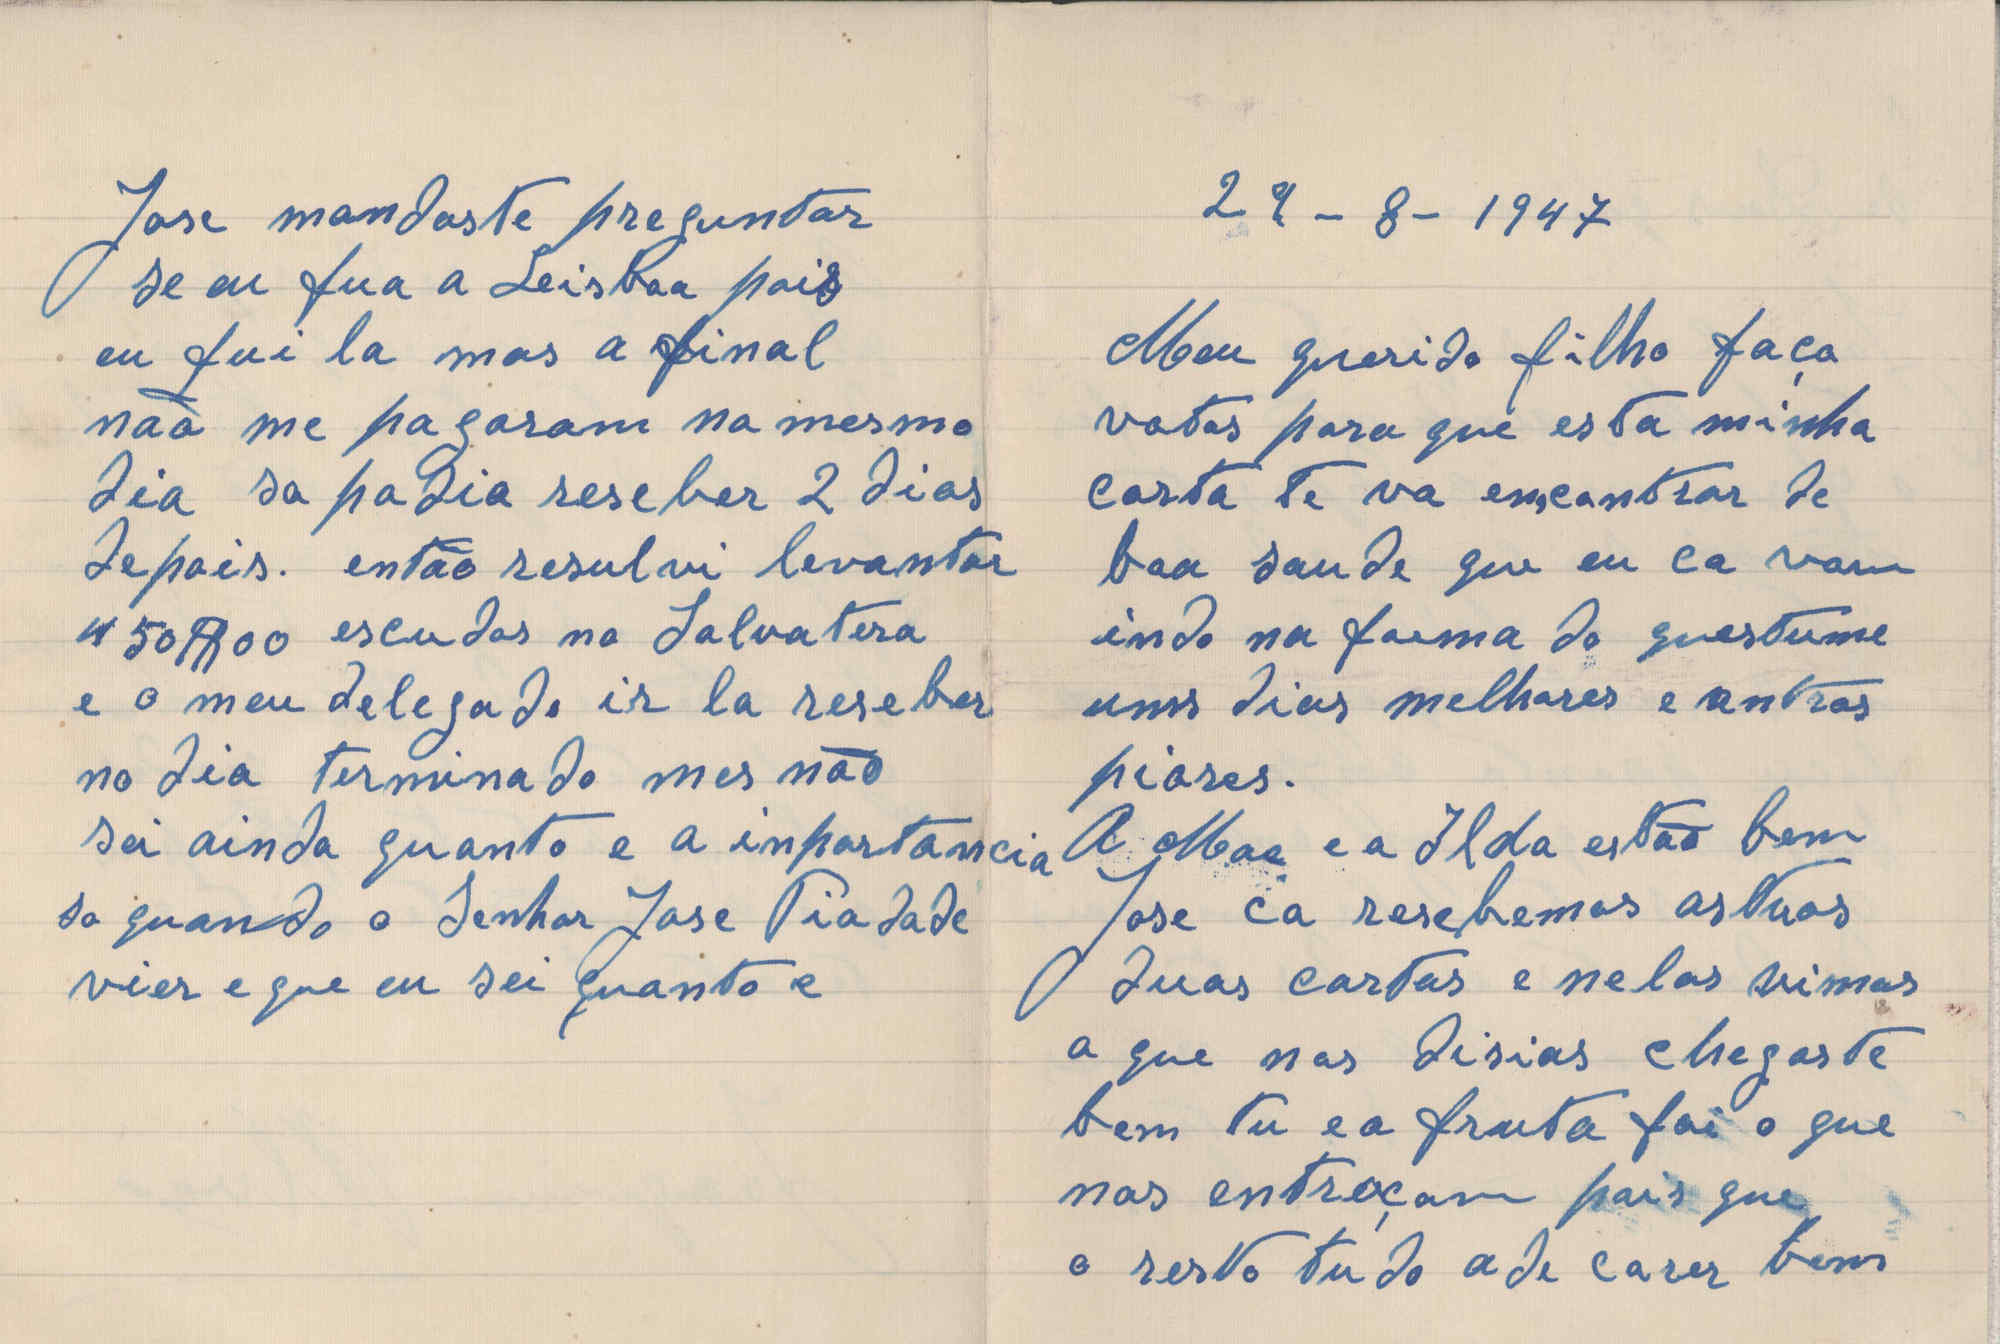 29 - 8 - 1947
Meu querido filho faço
votos para que esta minha
carta te va emcontrar de
boa saude que eu ca vou
indo na forma do questume
uns dias melhores e outros
piores.
A Mae e a Ilda estão bem
Jose ca resebemos as tuas
duas cartas e nelas vimos
o que nos disias chegaste
bem tu e a fruta foi o que
nos entreçou pois que
o resto tudo a de corer bem
Jose mandaste preguntar
se eu fua a Leisboa pois
eu fui la mas a final
não me pagaram no mesmo
dia so podia reseber 2 dias
depois. então resulvi levantar
450$00 escudos no Salvatera
e o meu delegado ir la reseber
no dia terminado mes não
sei ainda quanto e a inportancia
so quando o Senhor Jose Piadade
vier e que eu sei quanto e